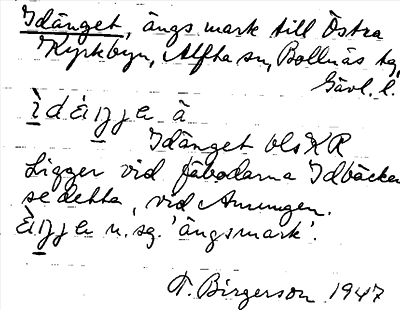 Idänget, ängsmark till Östra
Kyrkbyn, Alfta sn, Bollnäs tg,
Gävl. l.
ìdäŋjɐ ä
Idänget bls KR
Ligger vid fäbodarna Idbäcken
se detta, vid Amungen.
äŋjɐ n. sg. 'ängsmark'.
T. Birgerson 1947